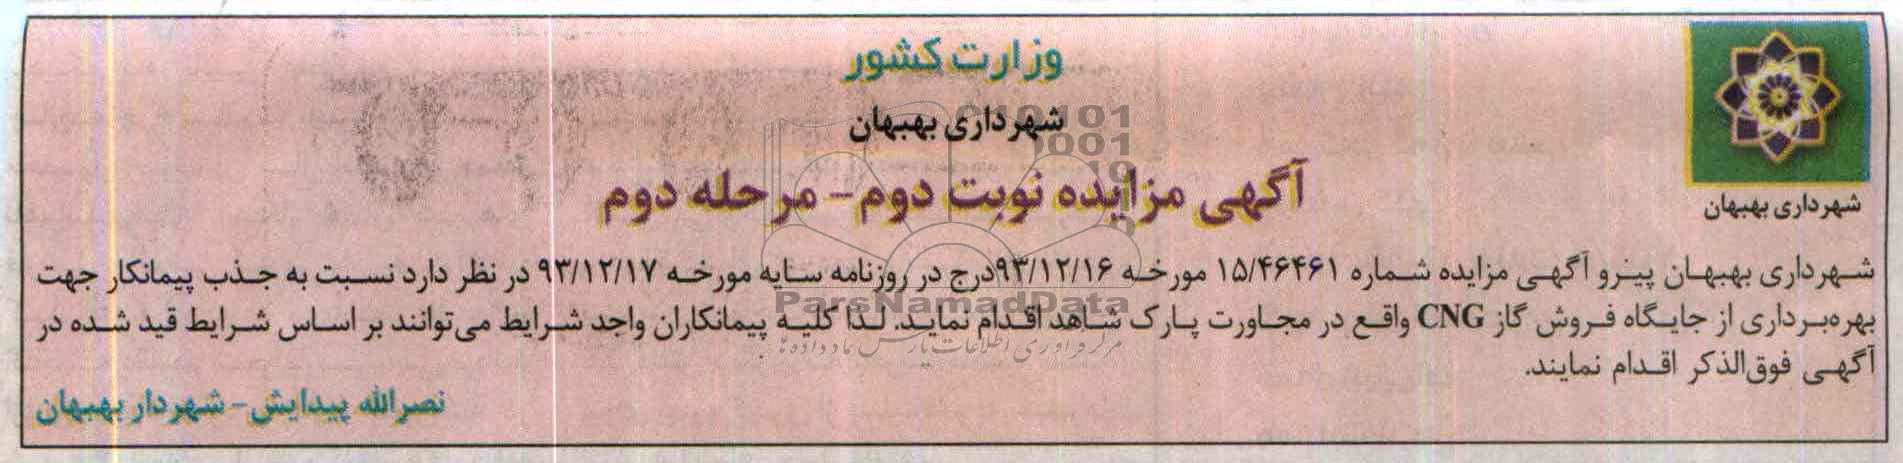 وزارت کشور
شهرداری بهبهان
آگهی مزایده نوبت دوم- مرحله دوم
شهرداری بهبهان
شهرداری بهبهان پیرو آگهی مزایده شماره ۱۵/۴۶۴۶۱ مورخه ۹۳/۱۲/۱۶درج در روزنامه سایه مورخه ۹۳/۱۲/۱۷ در نظر دارد نسبت به جذب پیمانکار جهت
بهره‌برداری از جایگاه فروش گاز CNG واقع در مجاورت پارک شاهد اقدام نماید. لذا کلیه پیمانکاران واجد شرایط می‌توانند بر اساس شرایط قید شده در
آگهی فوق‌الذکر اقدام نمایند.
نصرالله پیدایش- شهردار بهبهان
ParsNamadData
مرکز فرآوری اطلاعات پارس نماد داده ها